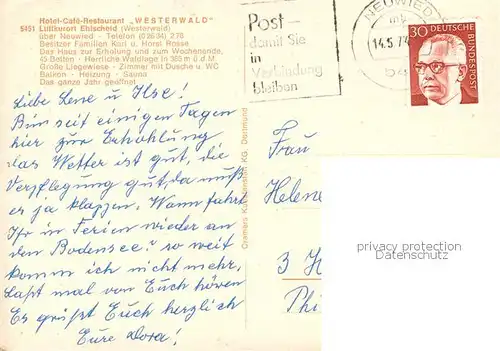 Hotel-Café-Restaurant „WESTERWALD"
5451 Luftkurort Ehlscheid (Westerwald)
über Neuwied - Telefon (02634) 276
Besitzer Familien Karl u. Horst Rosse
Das Haus zur Erholung und zum Wochenende,
45 Betten - Herrliche Waldlage in 365 m ü.d.M.
Große Liegewiese - Zimmer mit Dusche u. WC
Balkon - Heizung - Sauna
Das ganze Jahr geöffnet
Post -
damit Sie
in
Verbindung
bleiben
NEUWIED
14.5.7
30 DEUTSCHE
BUNDESPOST
Liebe Lene u Ilse!
Bin seit einigen Tagen
hier zur Erhohlung
das Wetter ist gut, die
Verpflegung gut, da muß
es ja klappen. Wann fahrt
Ihr in Ferien wieder an
den Bodensee? so weit
komm ich nicht mehr,
Laßt mal von Euch hören
Es grüßt Euch herzlich
Eure Dora!
Cramers Kunstanstalt KG, Dortmund
Frau
Helene
3 H
Phi
privacy protection
Datenschutz